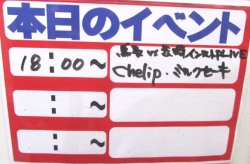 本日のイベント
18:00〜
vs インストアLIVE
Chelip・ミルクセーキ
:
〜
:
〜